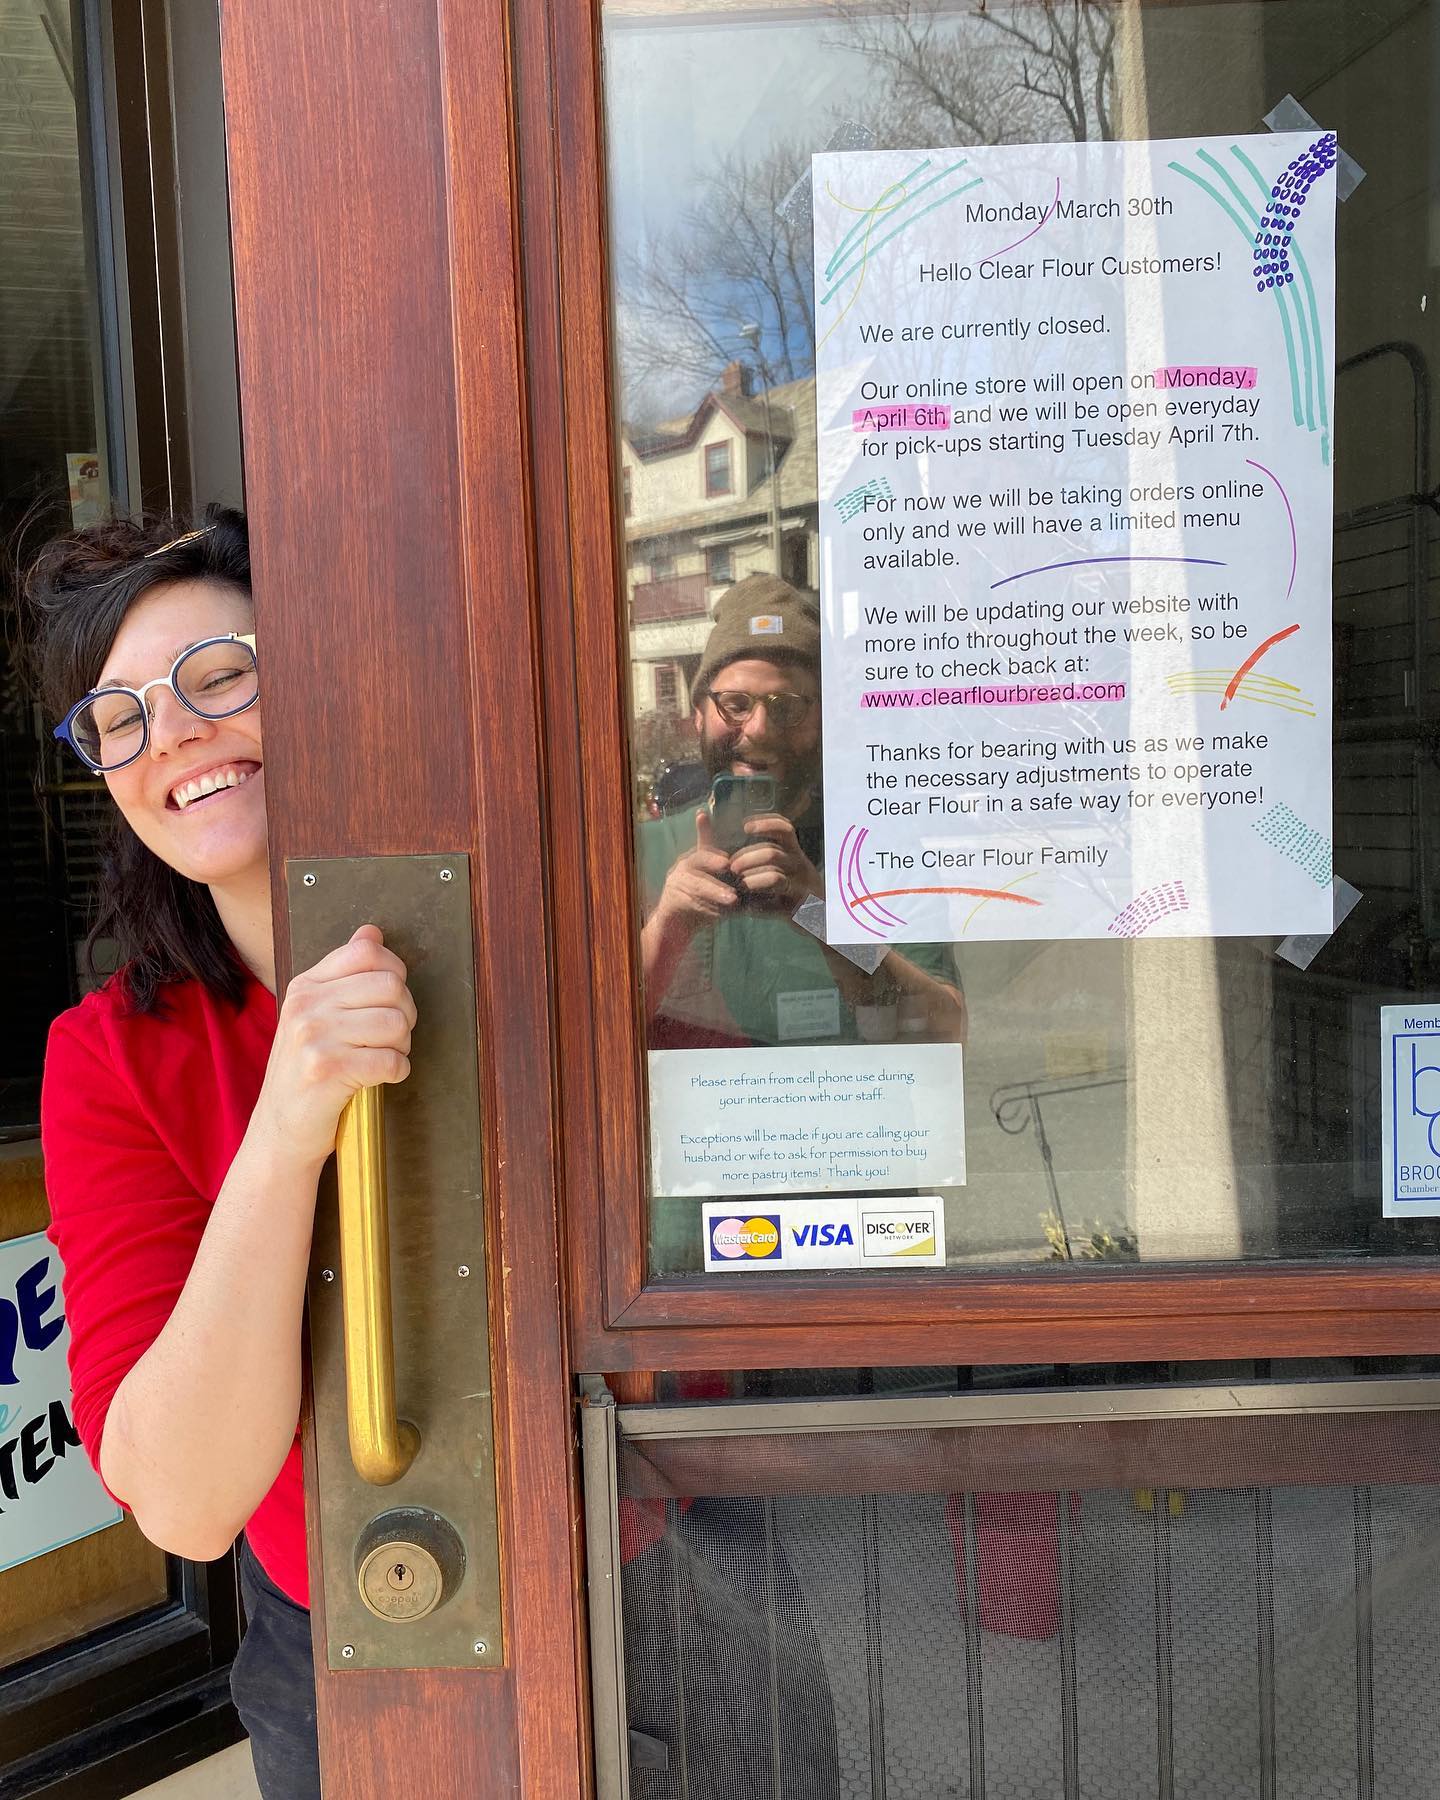 Monday March 30th
Hello Clear Flour Customers!
We are currently closed.
Our online store will open on Monday,
April 6th and we will be open everyday
for pick-ups starting Tuesday April 7th.
For now we will be taking orders online
only and we will have a limited menu
available.
We will be updating our website with
more info throughout the week, so be
sure to check back at:
www.clearflourbread.com
Thanks for bearing with us as we make
the necessary adjustments to operate
Clear Flour in a safe way for everyone!
-The Clear Flour Family
Please refrain from cell phone use during
your interaction with our staff.
Exceptions will be made if you are calling your
husband or wife to ask for permission to buy
more pastry items! Thank you!
MasterCard VISA DISCOVER
NETWORK
Memb
BROO
Chamber